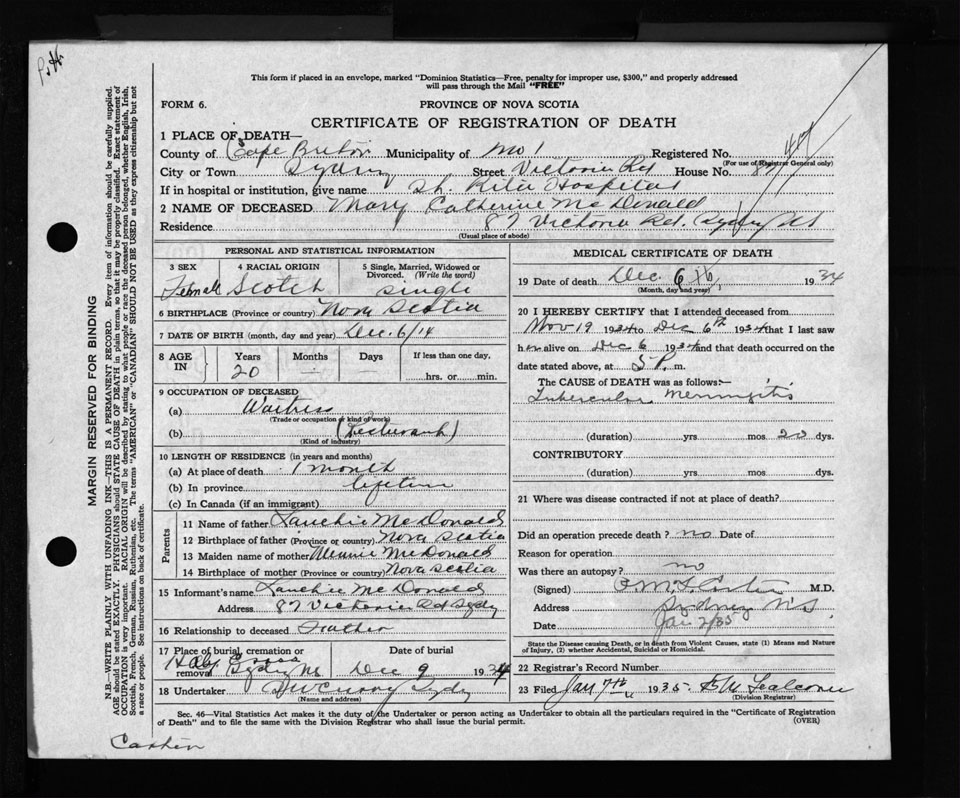 This form if placed in an envelope, marked "Dominion Statistics—Free, penalty for improper use, $300," and properly addressed
will pass through the Mail "FREE"
FORM 6.
PROVINCE OF NOVA SCOTIA
CERTIFICATE OF REGISTRATION OF DEATH
1 PLACE OF DEATH—
County of Cape Breton Municipality of No 1 Registered No. 47
(For use of Registrar General only)
City or Town Sydney Street Victoria Rd House No. 87
If in hospital or institution, give name St. Rita Hospital
2 NAME OF DECEASED Mary Catherine McDonald
Residence 87 Victoria Rd. Sydney NS
(Usual place of abode)
PERSONAL AND STATISTICAL INFORMATION
3 SEX Female
4 RACIAL ORIGIN Scotch
5 Single, Married, Widowed or Divorced. (Write the word) Single
6 BIRTHPLACE (Province or country) Nova Scotia
7 DATE OF BIRTH (month, day and year) Dec. 6/14
8 AGE IN Years 20 Months — Days — If less than one day, hrs. or min.
9 OCCUPATION OF DECEASED
(a) Waitress
(Trade or occupation or kind of work)
(b) (Restaurant)
(Kind of industry)
10 LENGTH OF RESIDENCE (in years and months)
(a) At place of death 1 month
(b) In province lifetime
(c) In Canada (if an immigrant)
Parents
11 Name of father Lauchie McDonald
12 Birthplace of father (Province or country) Nova Scotia
13 Maiden name of mother Minnie McDonald
14 Birthplace of mother (Province or country) Nova Scotia
15 Informant's name Lauchie McDonald
Address 87 Victoria Rd Sydy
16 Relationship to deceased Father
17 Place of burial, cremation or removal Holy Cross Sydy NS
Date of burial Dec 9 1934
18 Undertaker Sydy
(Name and address)
MEDICAL CERTIFICATE OF DEATH
19 Date of death Dec 6th, 1934
(Month, day and year)
20 I HEREBY CERTIFY that I attended deceased from
Nov 19 1934 to Dec 6th 1934 that I last saw
her alive on Dec 6 1934 and that death occurred on the
date stated above, at 5 P. m.
The CAUSE of DEATH was as follows:—
Tubercular Meningitis
(duration) yrs. mos. 20 dys.
CONTRIBUTORY
(duration) yrs. mos. dys.
21 Where was disease contracted if not at place of death?
Did an operation precede death? no Date of
Reason for operation
Was there an autopsy? no
(Signed) M.D.
Address Sydney NS
Date Jan 2/35
State the Disease causing Death, or in death from Violent Causes, state (1) Means and Nature
of Injury, (2) whether Accidental, Suicidal or Homicidal.
22 Registrar's Record Number
23 Filed Jan 7th 1935
(Division Registrar)
Sec. 46—Vital Statistics Act makes it the duty of the Undertaker or person acting as Undertaker to obtain all the particulars required in the "Certificate of Registration
of Death" and to file the same with the Division Registrar who shall issue the burial permit.
(OVER)
MARGIN RESERVED FOR BINDING
N.B.—WRITE PLAINLY WITH UNFADING INK—THIS IS A PERMANENT RECORD. Every item of information should be carefully supplied.
AGE should be stated EXACTLY. PHYSICIANS should STATE CAUSE OF DEATH in plain terms, so that it may be properly classified. Exact statement of
OCCUPATION is very important. RACIAL ORIGIN will be described by stating to what people or race the deceased person belonged, whether English, Irish,
Scottish, French, German, Russian, Ruthenian, etc. The terms "AMERICAN" or "CANADIAN" SHOULD NOT BE USED as they express citizenship but not
a race or people. See instructions on back of certificate.